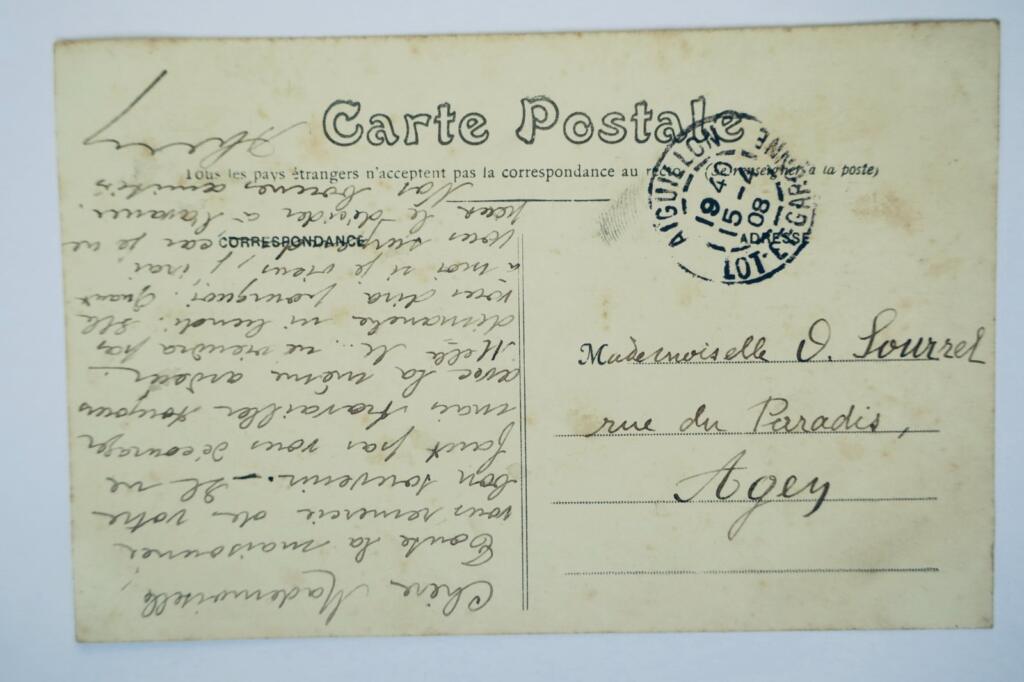 Carte Postale
Tous les pays étrangers n'acceptent pas la correspondance au (Se renseigner à la poste)
CORRESPONDANCE
ADRESSE
AIGUILLON
19 40
15-4
08
LOT-ET-GARONNE
Mademoiselle O. Sourrel
rue du Paradis,
Agen
Chère Mademoiselle,
Toute la maisonnée
vous remercie de votre
bon souvenir. Il ne
faut pas vous décourager
mais travailler toujours
avec la même ardeur.
Melle M... ne viendra pas
dimanche ni lundi. Elle
vous dira pourquoi. Quant
à moi si je viens, j'irai
vous car je ne
peux le décider à l'avance.
Nos bonnes amitiés